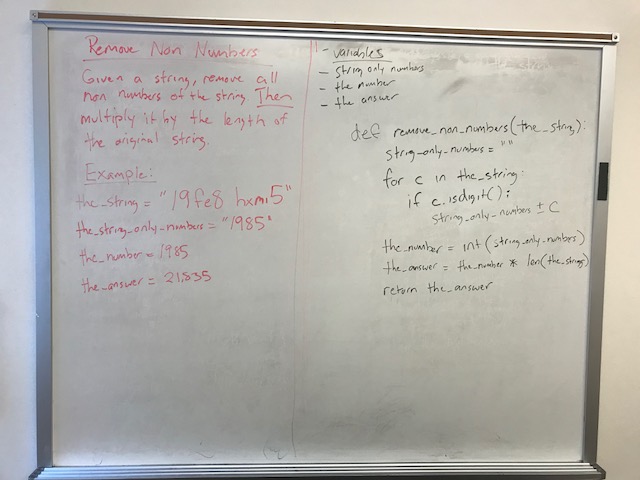 Remove Non Numbers
Given a string, remove all
non numbers of the string Then
multiply it by the length of
the original string.
Example:
the_string = "19fe8 hxmi5"
the_string_only_numbers = "1985"
the_number = 1985
the_answer = 21,835
- variables
- string only numbers
- the number
- the answer
def remove_non_numbers(the_string):
string_only_numbers = ""
for c in the_string:
if c.isdigit():
string_only_numbers += c
the_number = int(string_only_numbers)
the_answer = the_number * len(the_string)
return the_answer